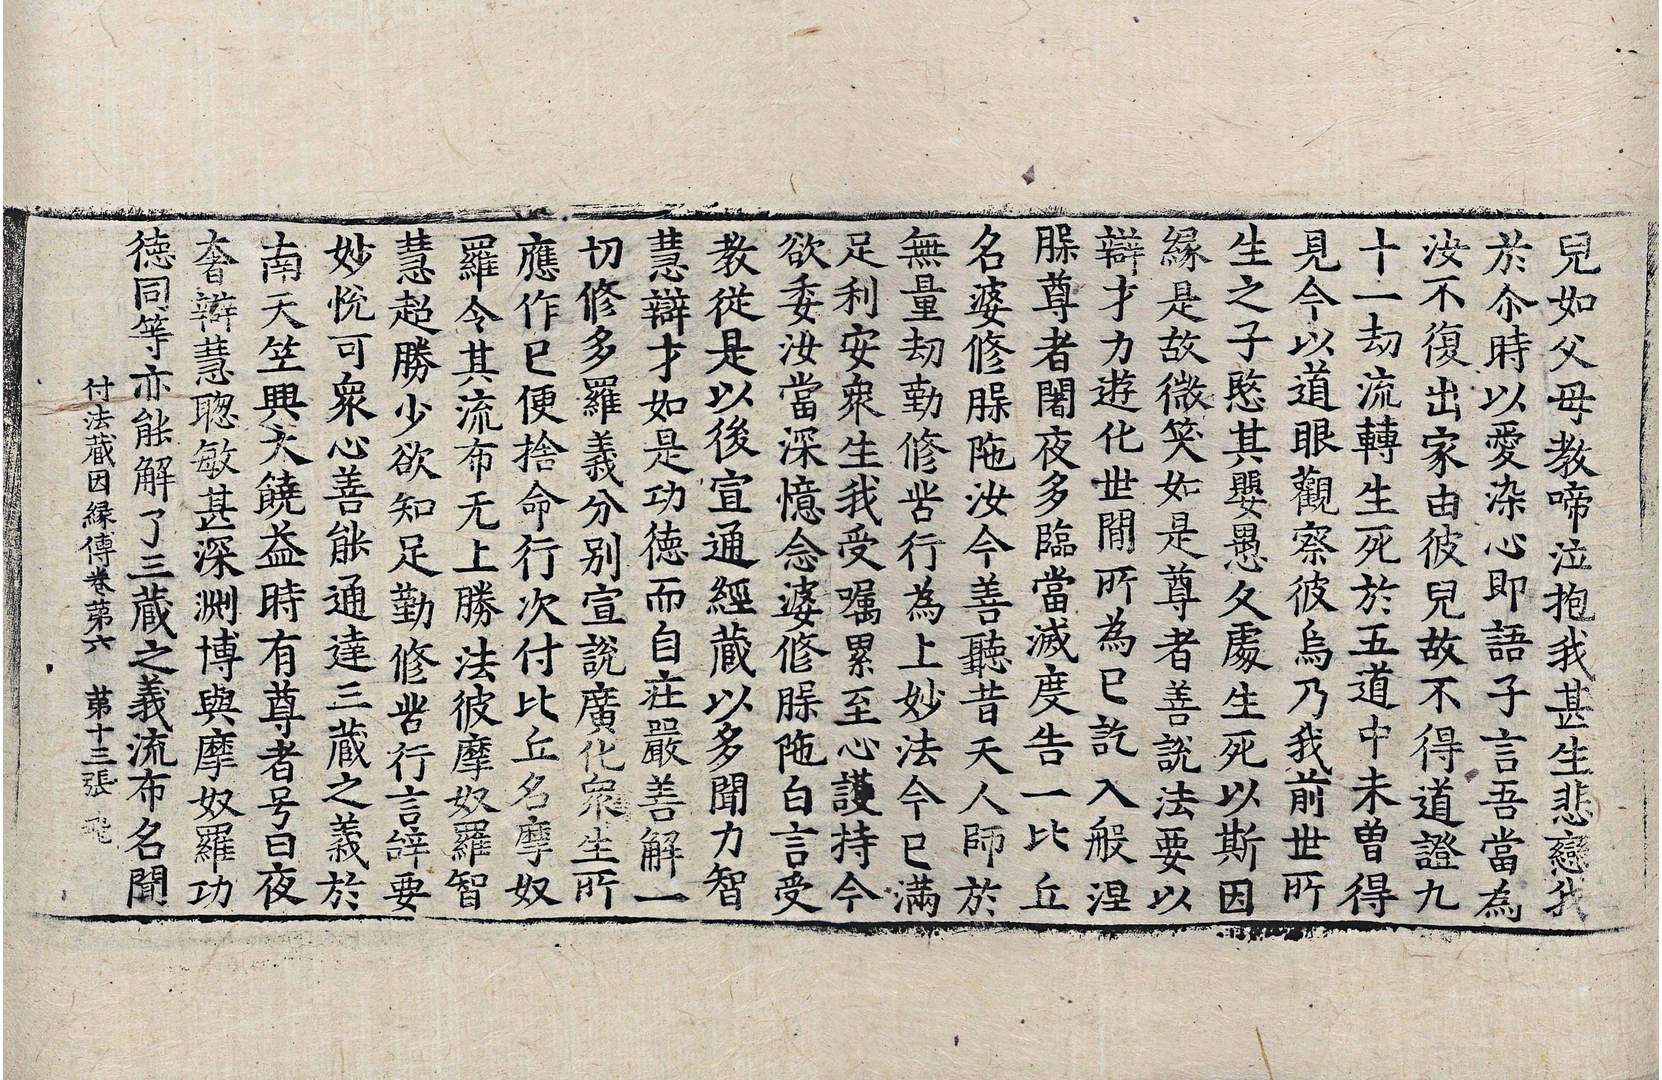 兒如父母教啼泣抱我甚生悲戀我
於尒時以愛染心即語子言吾當為
汝不復出家由彼兒故不得道證九
十一劫流轉生死於五道中未曾得
見今以道眼觀察彼烏乃我前世所
生之子愍其嬰愚久處生死以斯因
緣是故微笑如是尊者善說法要以
辯才力遊化世閒所為已訖入般涅
脲尊者闍夜多臨當滅度告一比丘
名婆修脲陁汝今善聽昔天人師於
無量劫勤修苦行為上妙法今已满
足利安衆生我受嘱累至心護持今
欲委汝當深憶念婆修脲陁白言受
教從是以後宣通經蔵以多聞力智
慧辯才如是功德而自莊嚴善解一
切修多羅義分别宣說廣化衆生所
應作已便捨命行次付比丘名摩奴
羅令其流布无上勝法彼摩奴羅智
慧超勝少欲知足勤修苦行言辞要
妙悅可衆心善能通達三蔵之義於
南天竺興大饒益時有尊者号曰夜
奢辯慧聦敏甚深渊博與摩奴羅功
德同等亦能解了三蔵之義流布名聞
付法蔵因縁傳卷第六 第十三張 飛